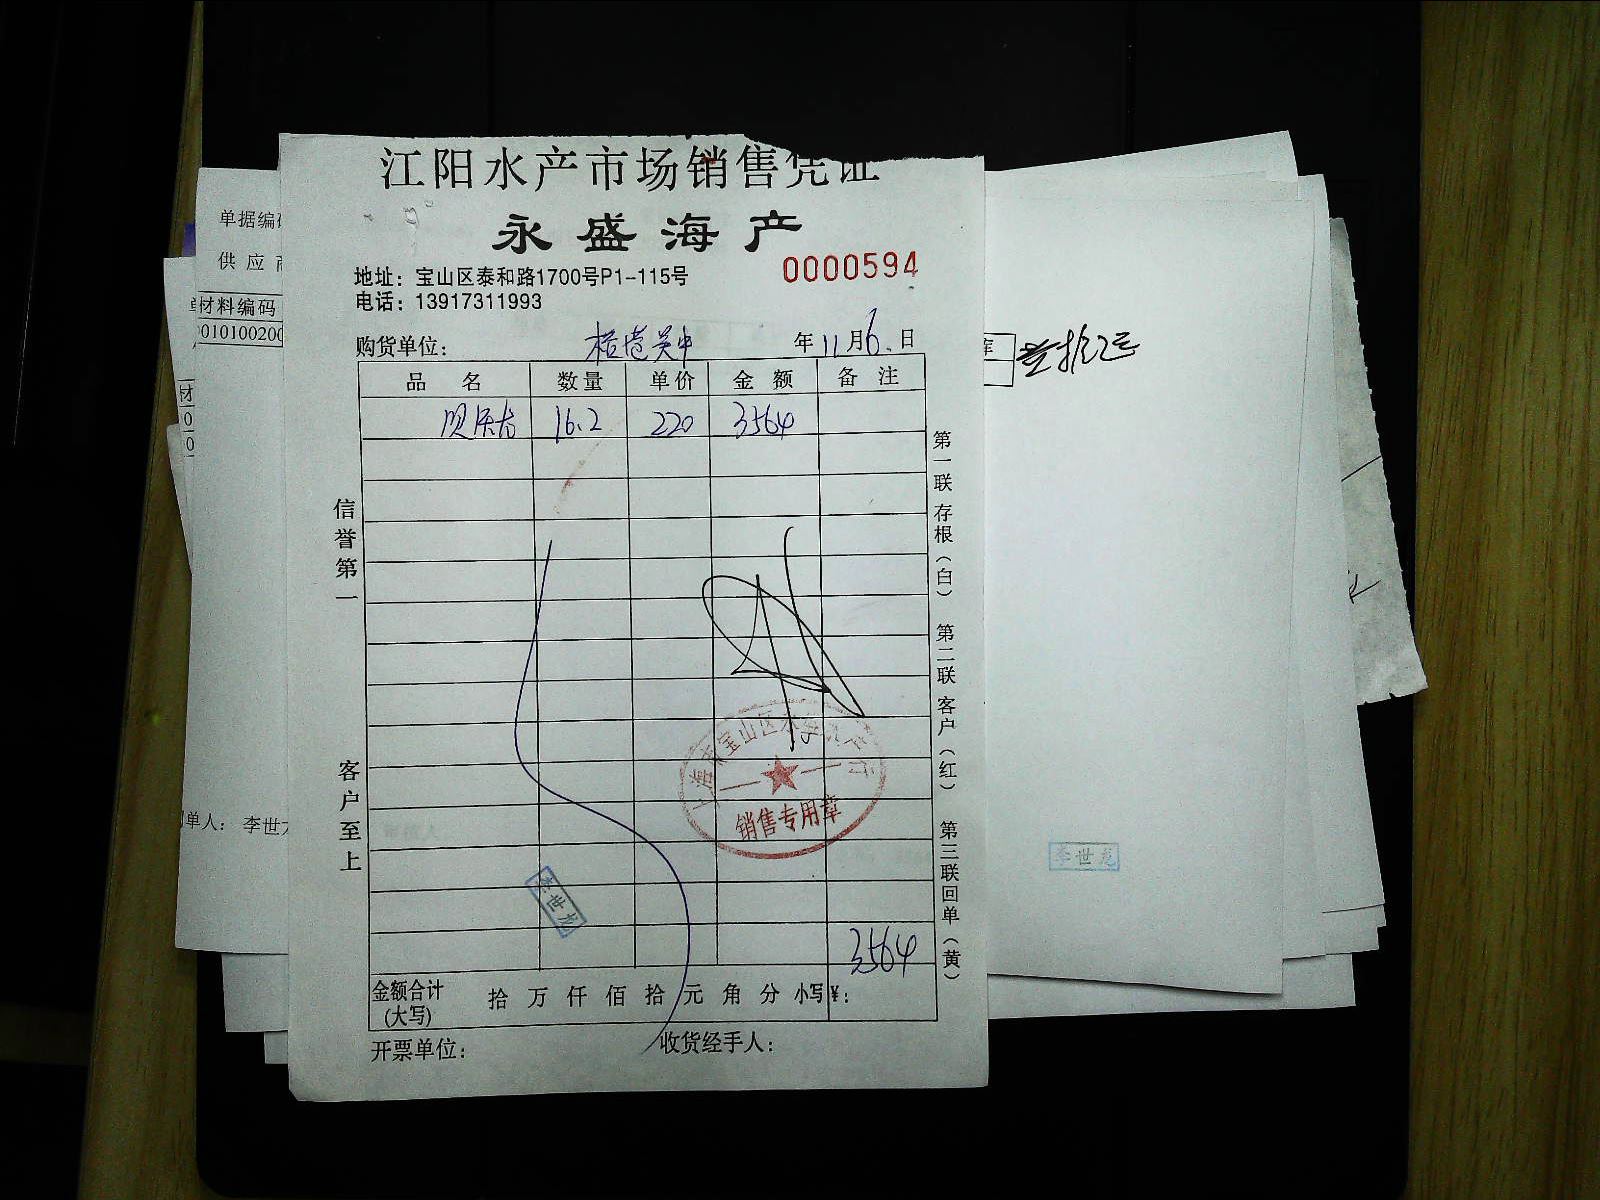 江阳水产市场销售凭证
永盛海产
地址：宝山区泰和路1700号P1-115号
电话：13917311993
0000594
购货单位：
年11月6日
品名 数量 单价 金额 备注
16.2 220 3564
信誉第一
客户至上
第一联存根（白） 第二联客户（红） 第三联回单（黄）
销售专用章
李世龙
3564
金额合计（大写） 拾 万 仟 佰 拾 元 角 分 小写¥：
开票单位： 收货经手人：
单据编
供应
材料编码
010100200
单人： 李世
李世龙